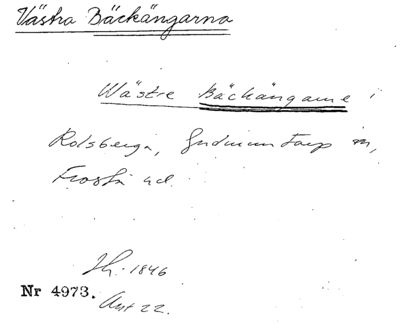 Västra Bäckängarna
Wästre Bäckängarne i
Rolsberga, Gudmuntorp sn,
Frosta hd.
Lh. 1846
Nr 4973.
Akt 22.